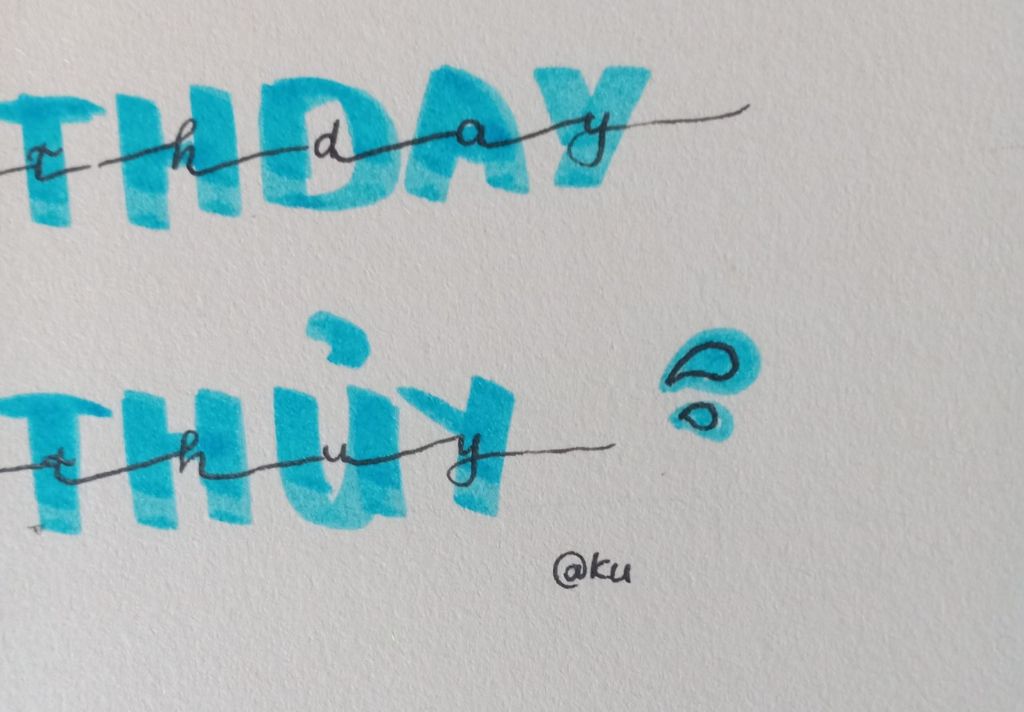 THDAY
thday
THỦY
thuy
@ku